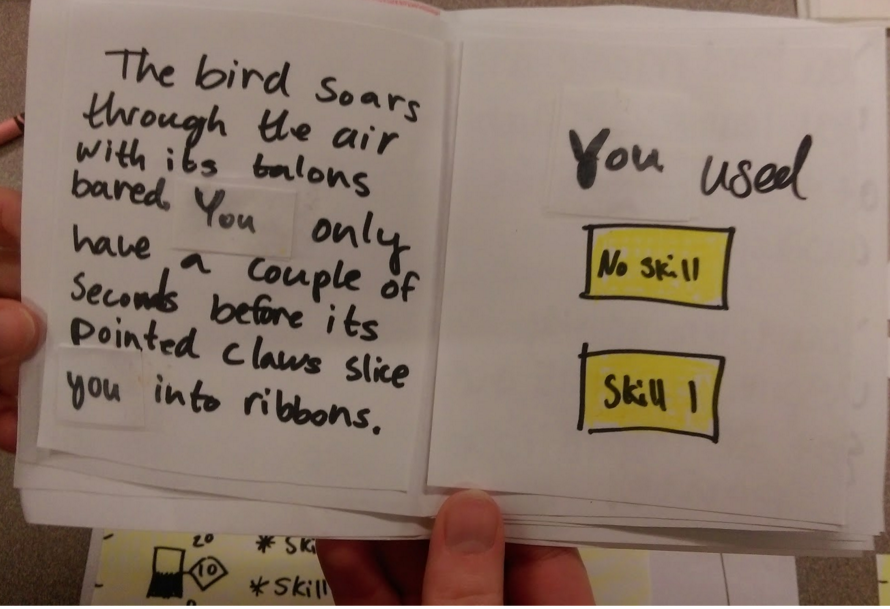 The bird soars
through the air
with its talons
bared. You only
have a couple of
seconds before its
pointed claws slice
you into ribbons.
You used
No skill
Skill 1
20
10
* Ski
* Skill